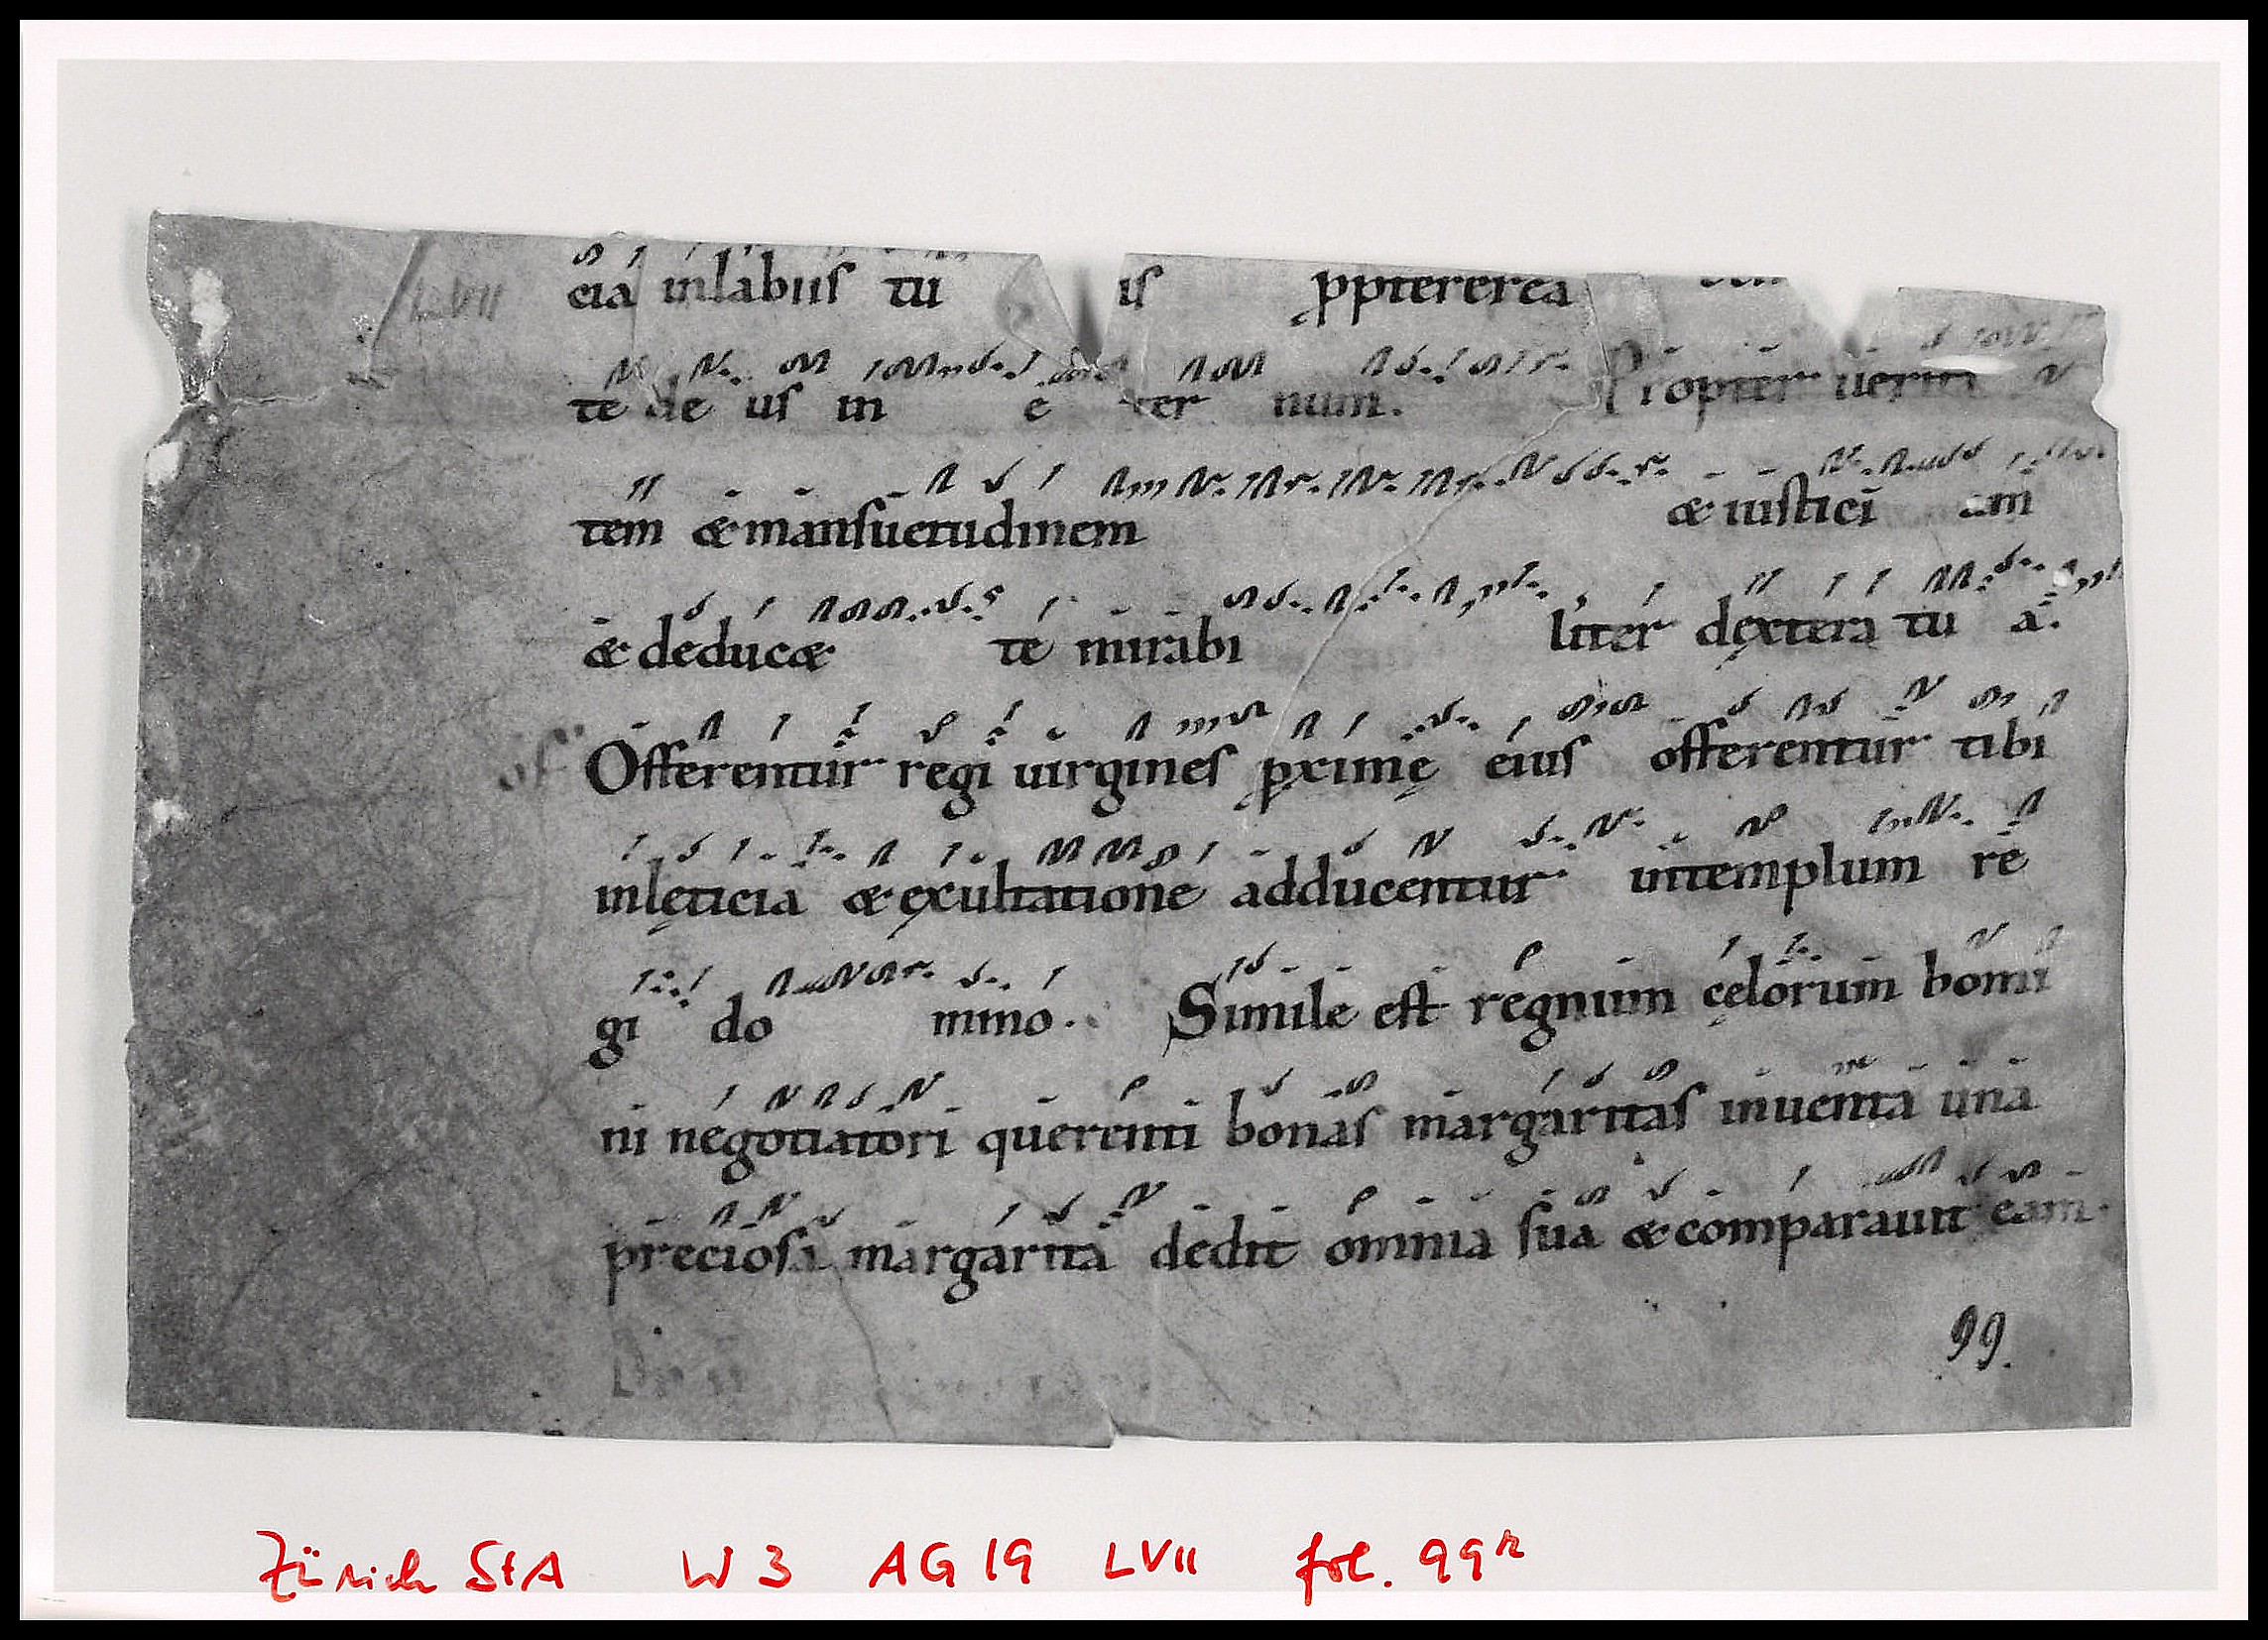 cia inlabiis tu is ꝓpterерea
te de us in e ter num. Propter uerita
tem & mansuetudinem & iustici am
& deducæ te mirabi liter dextera tu a.
of Offerentur regi uirgines ꝓximę eius offerentur tibi
inlęticia & exultatione adducentur intemplum re
gi do mino. Simile est regnum cęlorum homi
ni negotiatori querenti bonas margaritas inuenta una
preciosa margarita dedit omnia sua & comparauit eam.
99.
Zürich StA W 3 AG 19 LVII fol. 99r